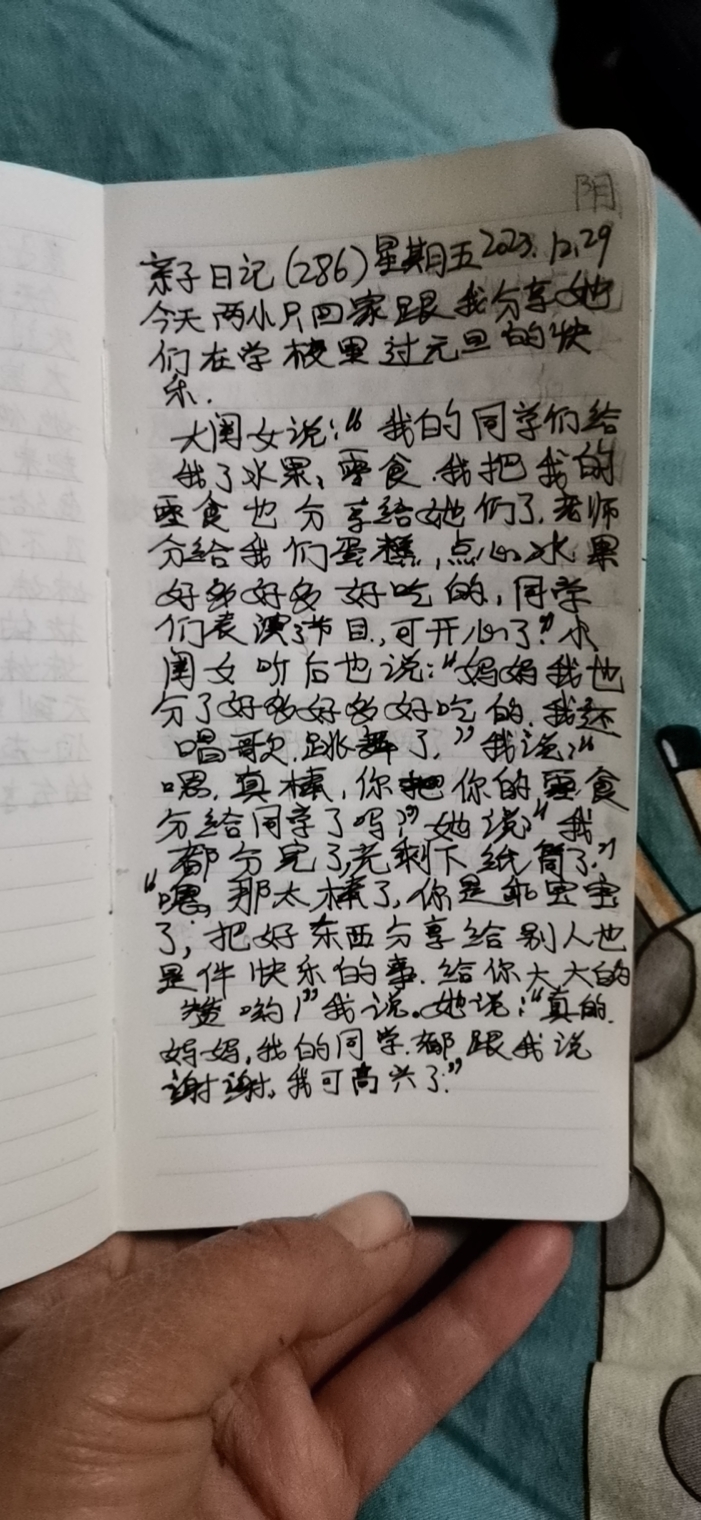 阳
亲子日记(286)星期五2023.12.29
今天两小只回家跟我分享她
们在学校里过元旦的快
乐.
大闺女说:“我的同学们给
我了水果、零食.我把我的
零食也分享给她们了.老师
分给我们蛋糕,点心水果
好多好多好吃的,同学
们表演了节目,可开心了”小
闺女听后也说:“妈妈我也
分了好多好多好吃的.我还
唱歌.跳舞了.”我说:“
嗯.真棒,你把你的零食
分给同学了吗?”她说“我
都分完了,光剩下纸筒了.”
“嗯,那太棒了,你是乖宝宝
了,把好东西分享给别人也
是件快乐的事.给你大大的
赞哟!”我说。她说:“真的.
妈妈,我的同学.都跟我说
谢谢,我可高兴了.”